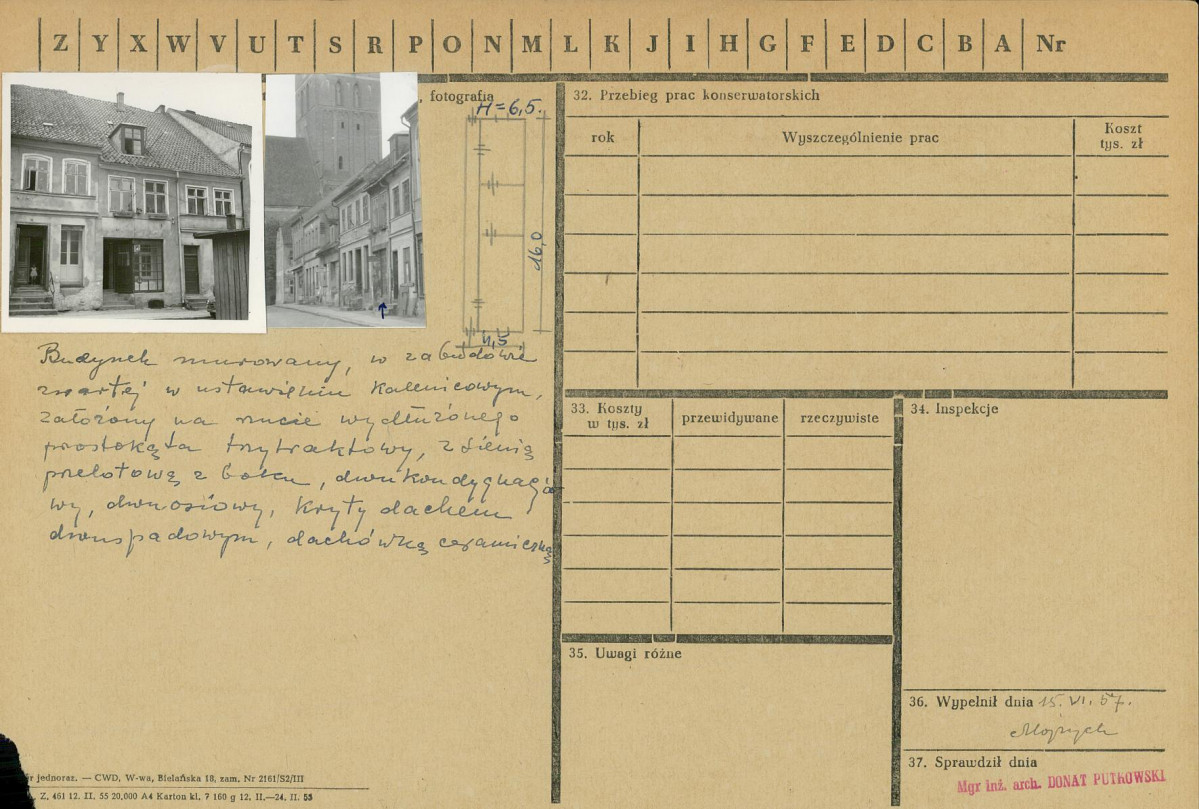 Z Y X W V U T S R P O N M L K J I H G F E D C B A Nr
, fotografia
H=6,5.
16,0
4,5
Budynek murowany, w zabudowie
zwartej w ustawieniu kalenicowym,
założony na rzucie wydłużonego
prostokąta trzytraktowy, z sienią
przelotową z boku, dwukondygnacjo
wy, dwuosiowy, kryty dachem
dwuspadowym, dachówką ceramiczną
32. Przebieg prac konserwatorskich
rok Wyszczególnienie prac Koszt
tys. zł
33. Koszty
w tys. zł przewidywane rzeczywiste
34. Inspekcje
35. Uwagi różne
36. Wypełnił dnia 15. VI. 57.
37. Sprawdził dnia
Mgr inż. arch. DONAT PUTKOWSKI
jednoraz. — CWD, W-wa, Bielańska 18, zam. Nr 2161/S2/III
Z. 461 12. II. 55 20.000 A4 Karton kl. 7 160 g 12. II.—24. II. 55